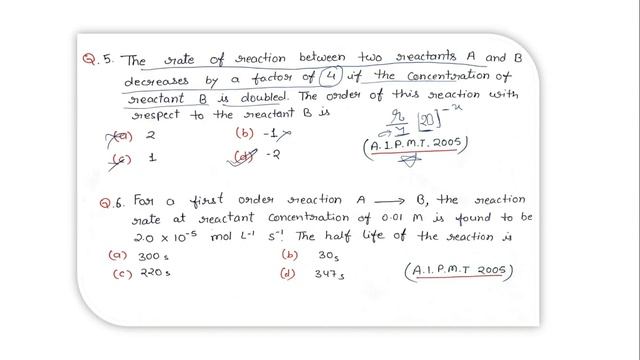 Q.5. The rate of reaction between two reactants A and B
decreases by a factor of 4 if the concentration of
reactant B is doubled. The order of this reaction with
respect to the reactant B is
(a) 2 (b) -1
(c) 1 (d) -2
(A.I.P.M.T. 2005)
Q.6. For a first order reaction A → B, the reaction
rate at reactant concentration of 0.01 M is found to be
2.0 × 10⁻⁵ mol L⁻¹ s⁻¹. The half life of the reaction is
(a) 300 s (b) 30 s
(c) 220 s (d) 347 s (A.I.P.M.T 2005)